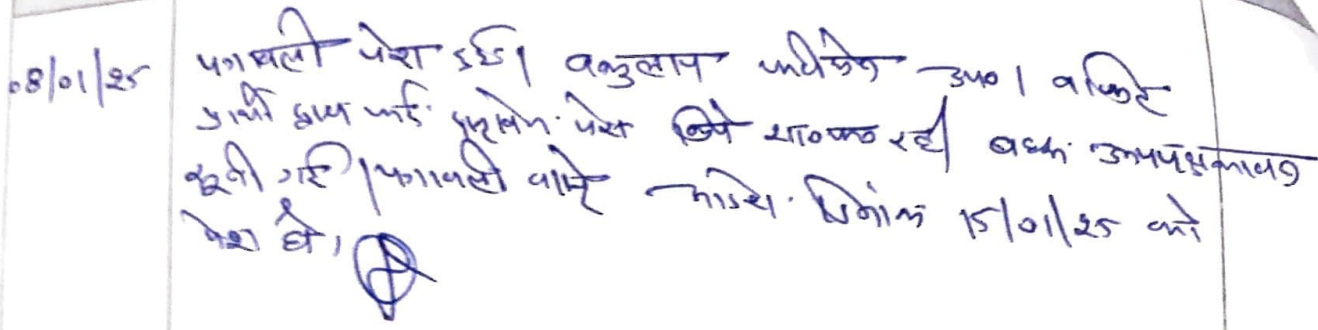 08/01/25 पत्रावली पेश हुई। वकुलाय फरीकेन उप०। वकील
प्रार्थी द्वारा पेश किये शा०प्रा० रहे। बहस उभयपक्ष
सुनी गई। पत्रावली वास्ते आदेश दिनांक 15/01/25 को
पेश हो।